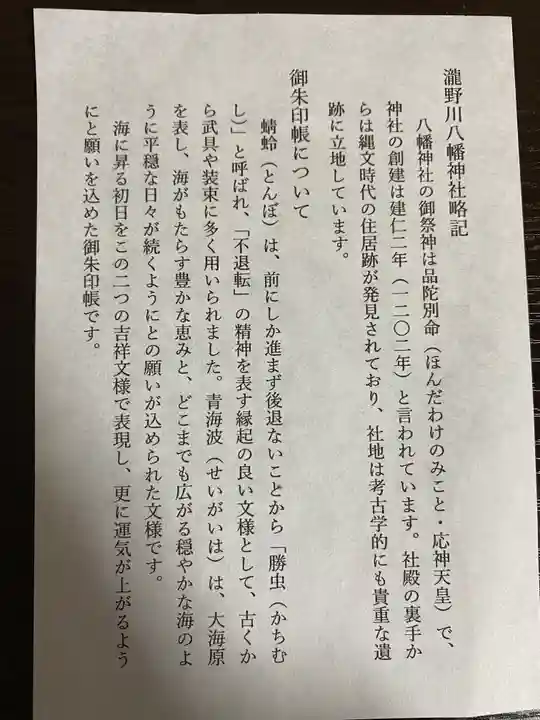 瀧野川八幡神社略記
八幡神社の御祭神は品陀別命(ほんだわけのみこと・応神天皇)で、
神社の創建は建仁二年(一二〇二年)と言われています。社殿の裏手か
らは縄文時代の住居跡が発見されており、社地は考古学的にも貴重な遺
跡に立地しています。
御朱印帳について
蜻蛉(とんぼ)は、前にしか進まず後退ないことから「勝虫(かちむ
し)」と呼ばれ、「不退転」の精神を表す縁起の良い文様として、古くか
ら武具や装束に多く用いられました。青海波(せいがいは)は、大海原
を表し、海がもたらす豊かな恵みと、どこまでも広がる穏やかな海のよ
うに平穏な日々が続くようにとの願いが込められた文様です。
海に昇る初日をこの二つの吉祥文様で表現し、更に運気が上がるよう
にと願いを込めた御朱印帳です。